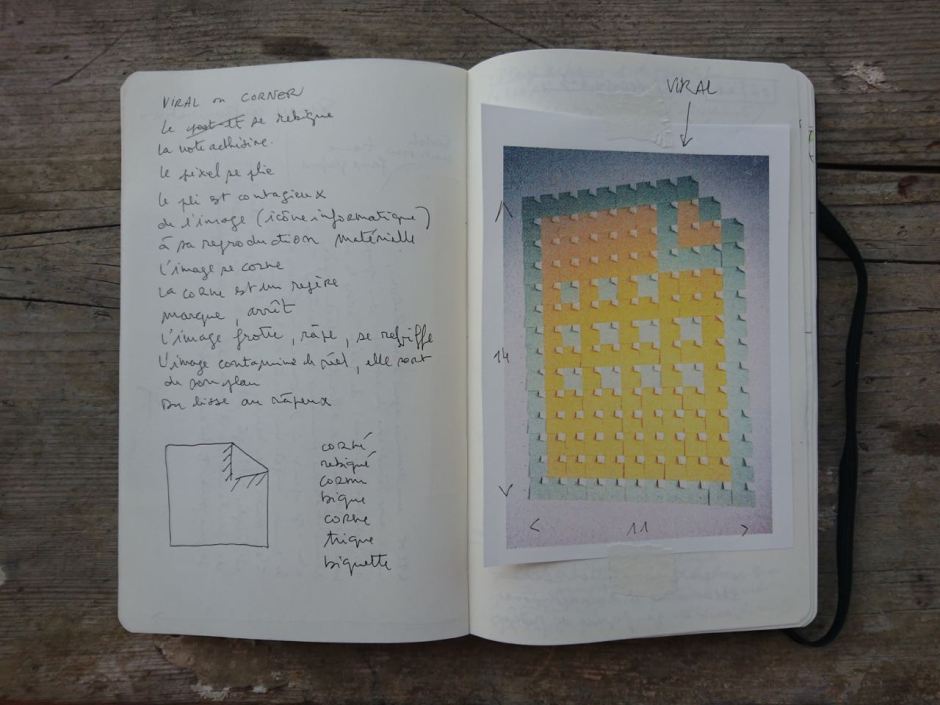 VIRAL ou CORNER
Le post-it se rebique
la note adhésive.
le pixel se plie
le pli est contagieux
de l'image (icône informatique)
à sa reproduction matérielle
l'image se corne
la corne est un repère
marque, arrêt
l'image frotte, râpe, se rebiffe
l'image contamine le réel, elle sort
de son plan
du lisse au râpeux
corné
rebiqué
cornu
bique
corne
trique
biquette
VIRAL
14
11